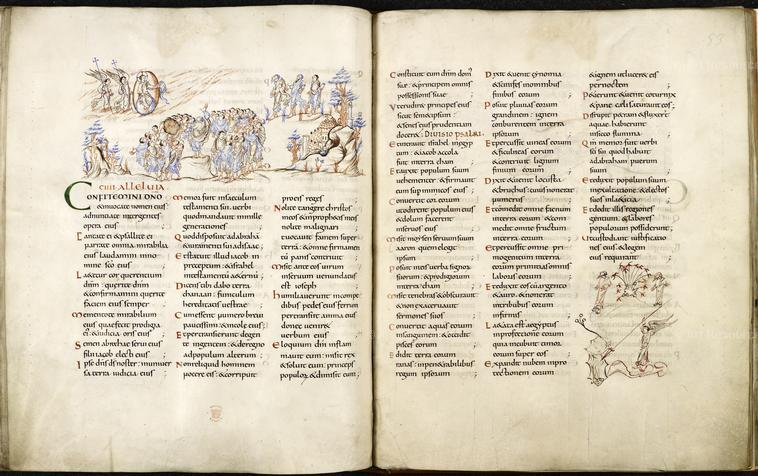 CIIII ALLELUIA
CONFITEMINI DNO
& inuocate nomen eius
adnuntiate inter gentes
opera eius
Cantate ei & psallite ei
narrate omnia mirabilia
eius laudamini in no
mine sco eius
Laetetur cor querentium
dnm : querite dnm
& confirmamini querite
faciem eius semper
Mementote mirabilium
eius quae fecit prodigia
ei' & iudicia oris eius
Semen abrahae serui eius
filii iacob electi eius
Ipse dns ds noster : in uniuer
sa terra iudicia eius
Memor fuit in saeculum
testamenti sui uerbi
quod mandauit in mille
generationes
Quod disposuit ad abraha
& iuramenti sui ad isaac
Et statuit illud iacob in
preceptum & israhel
in testamentum aeternu
Dicens tibi dabo terra
chanaan : funiculum
hereditatis uestrae
Cum essent numero breui
paucissimi & incolae eius
Et pertransierunt degen
te in gentem & de regno
ad populum alterum
Non reliquid hominem
nocere eis : & corripuit
pro eis reges
Nolite tangere christos
meos & in prophetis meis
nolite malignari
Et uocauit famem super
terra : & omne firmamen
tu panis contriuit
Misit ante eos uirum
in seruum uenundatus
est ioseph
Humiliauerunt in compe
dibus pedes eius ferrum
pertransiit anima eius
donec ueniret
uerbum eius
Eloquium dni inflam
mauit eum : misit rex
& soluit eum : princeps
populorum & dimisit eum
Constituit eum dnm dom'
suae : & principem omnis
possessionis suae
Ut erudiret principes eius
sicut semetipsum :
& senes eius prudentiam
doceret : DIUISIO PSALMI
Et intrauit israhel in egyp
tum : & iacob accola
fuit in terra cham
Et auxit populum suum
uehementer & firmauit
eum sup inimicos eius
Conuertit cor eorum
ut odirent populum eius
& dolum facerent
in seruos eius
Misit moysen seruum suum
aaron quem elegit
ipsum
Posuit in eis uerba signor
suorum : & prodigiorum
in terra cham
Misit tenebras & obscurauit
& non exacerbauit
sermones suos
Conuertit aquas eorum
in sanguinem : & occidit
pisces eorum
Edidit terra eorum
ranas : in penetrabilibus
regum ipsorum
Dixit & uenit cynomia
& scinifes in omnibus
finibus eorum
Posuit pluuias eorum
grandinem : ignem
conburentem in terra
ipsorum
Et percussit uineas eorum
& ficulneas eorum
& contriuit lignum
finium eorum
Dixit & uenit locusta
& bruchus : cuius non erat
numerus
Et comedit omne fenum
in terra eorum & com
medit omne fructum
in terra eorum
Et percussit omne pri
mogenitum in terra
eorum primitias omnis
laboris eorum
Et eduxit eos cum argento
& auro : & non erat
in tribubus eorum
infirmus
Laetata est aegyptus
in profectione eorum
quia incubuit timor
eorum super eos
Expandit nubem in pro
tectionem eorum
& ignem ut luceret eis
per noctem
Petierunt & uenit coturnix
& pane caeli saturauit eos
Disrupit petram & fluxert
aquae habierunt
in sicco flumina
Qm memor fuit uerbi
sci sui quod habuit
ad abraham puerum
suum
Et eduxit populum suum
in exultatione & electos
suos in laetitia
Et dedit illis regiones
gentium : & labores
populorum possiderunt
Ut custodiant iustificatio
nes eius & legem
eius requirant